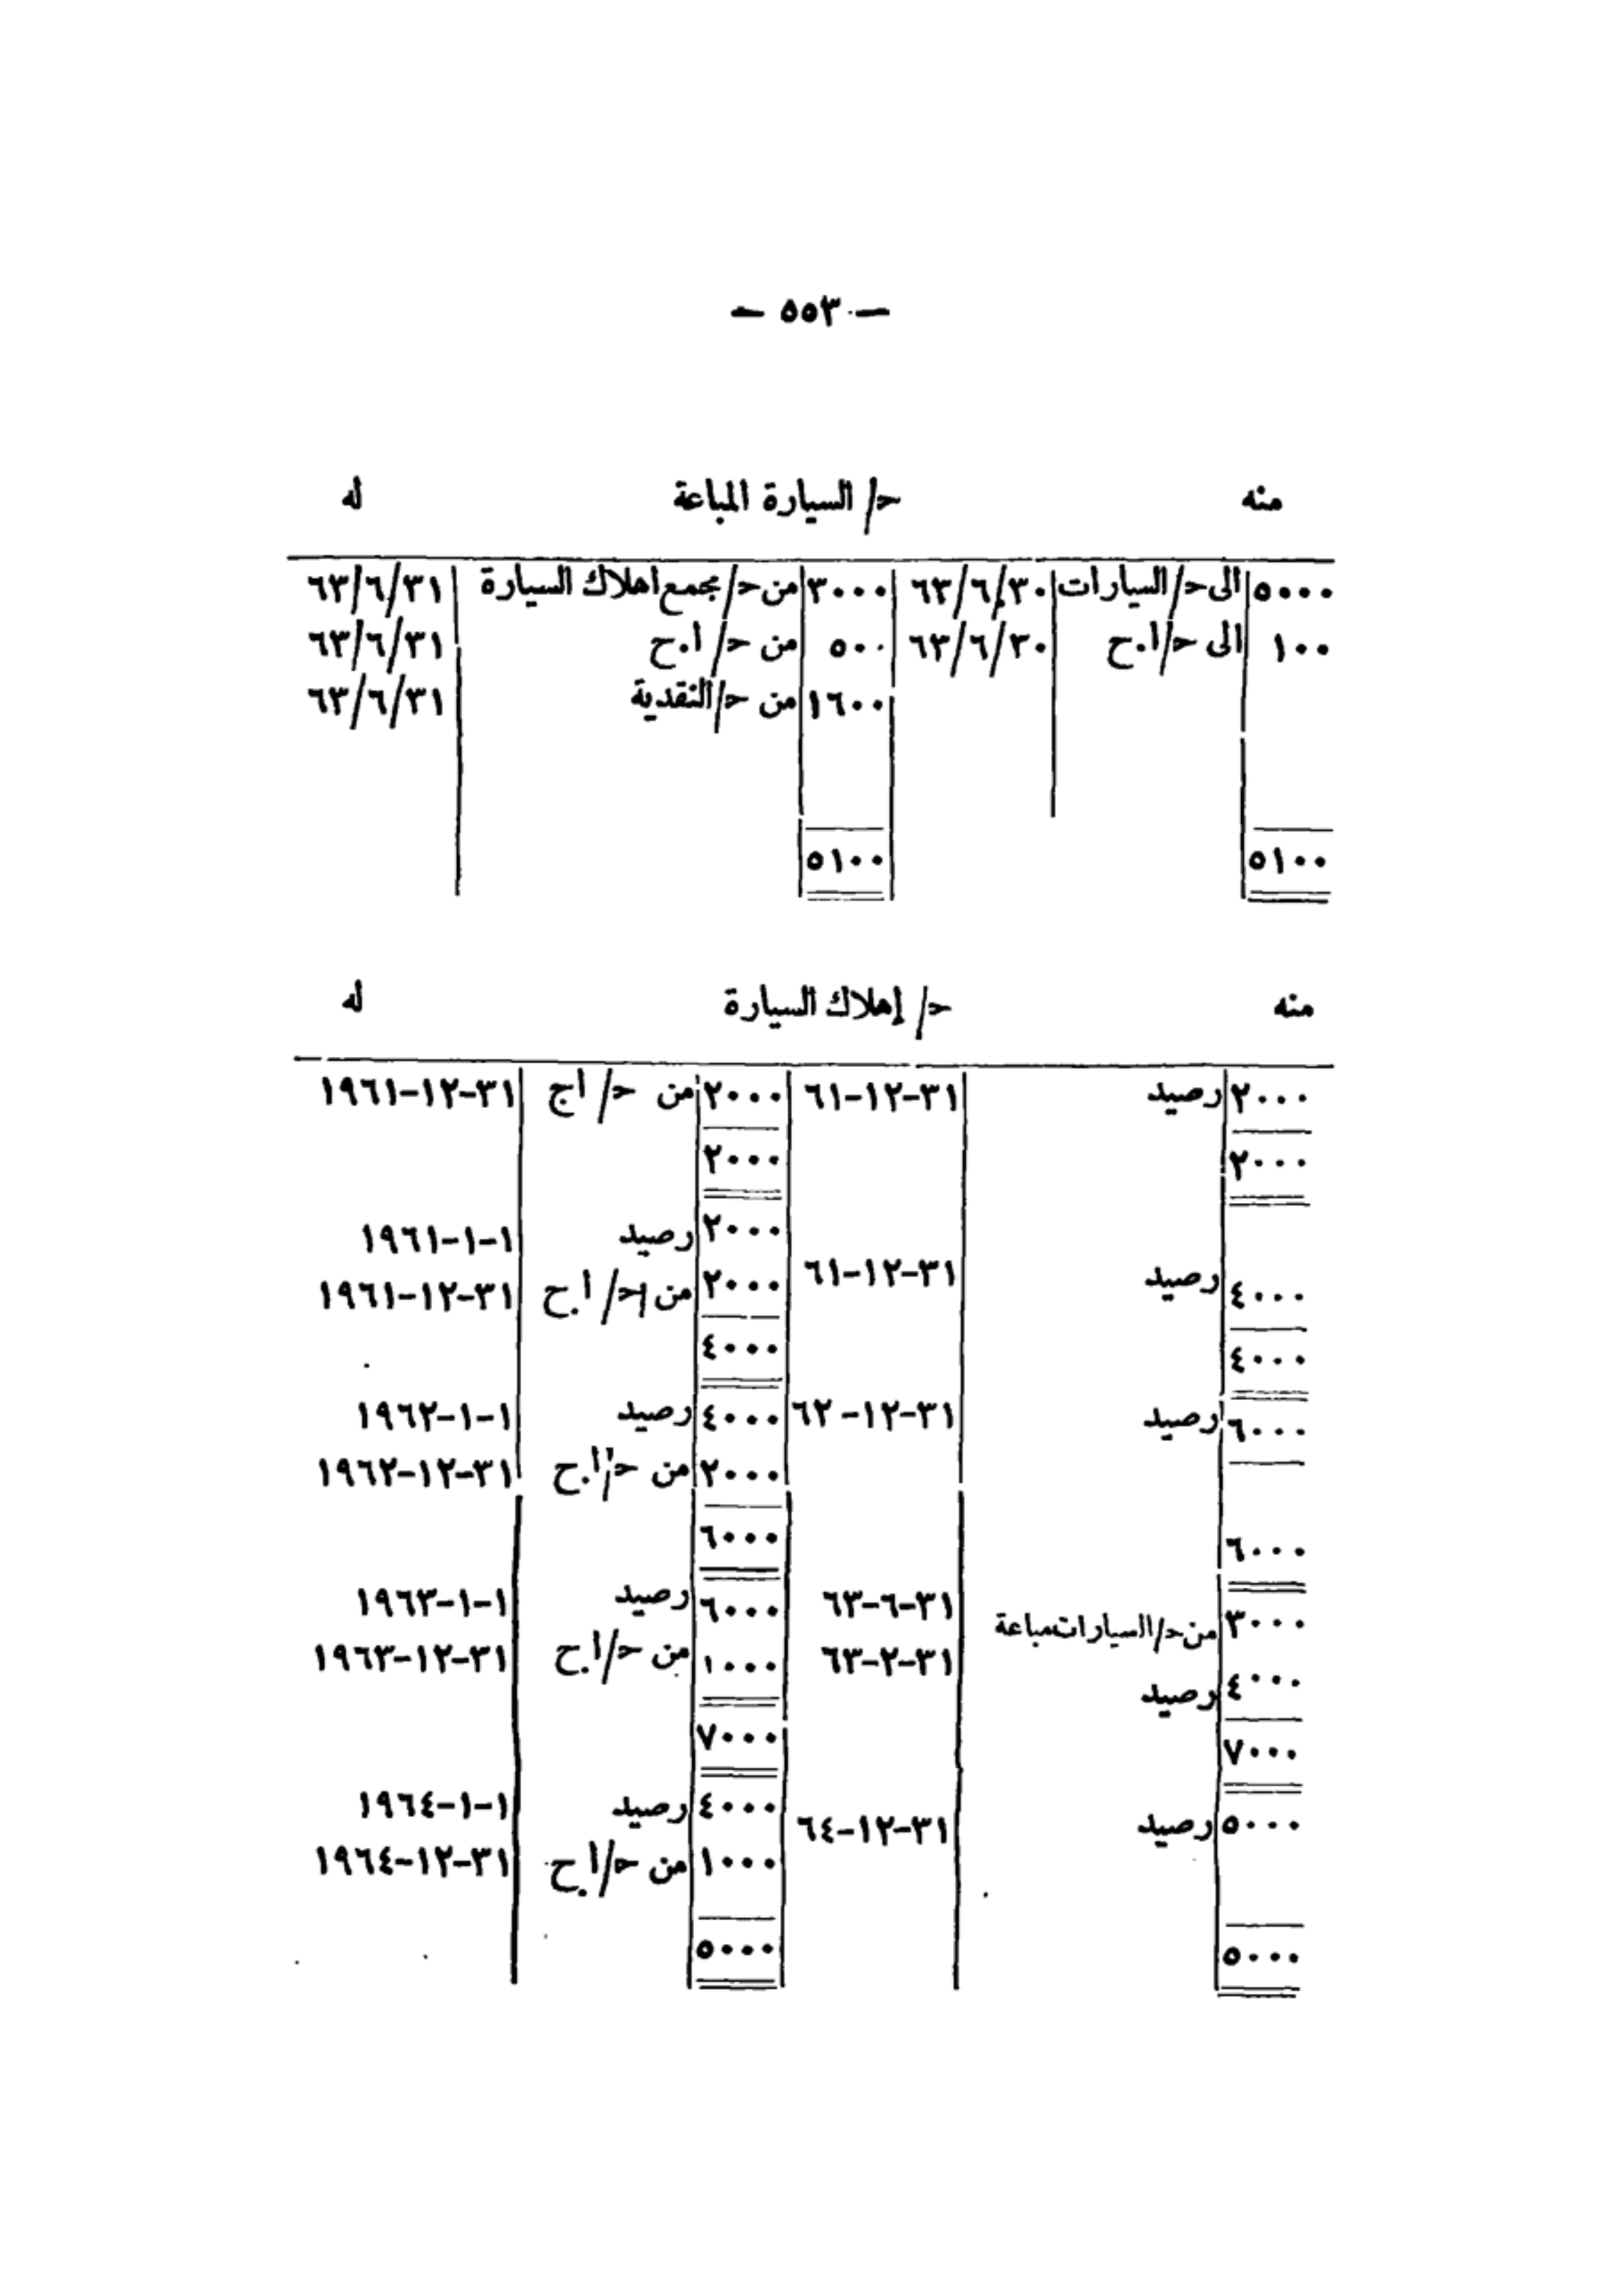 — ٥٥٣ —
منه ح/ السيارة المباعة له
٥٠٠٠ الى ح/ السيارات ٦٣/٦/٣٠ ٣٠٠٠ من ح/ مجمع اهلاك السيارة ٦٣/٦/٣١
١٠٠ الى ح/ أ.ح ٦٣/٦/٣٠ ٥٠٠ من ح/ أ.ح ٦٣/٦/٣١
١٦٠٠ من ح/ النقدية ٦٣/٦/٣١
٥١٠٠ ٥١٠٠
منه ح/ إهلاك السيارة له
٢٠٠٠ رصيد ٣١-١٢-٦١ ٢٠٠٠ من ح/ اج ٣١-١٢-١٩٦١
٢٠٠٠ ٢٠٠٠
٢٠٠٠ رصيد ١-١-١٩٦١
٤٠٠٠ رصيد ٣١-١٢-٦١ ٢٠٠٠ من ح/ أ.ح ٣١-١٢-١٩٦١
٤٠٠٠ ٤٠٠٠
٦٠٠٠ رصيد ٣١-١٢-٦٢ ٤٠٠٠ رصيد ١-١-١٩٦٢
٢٠٠٠ من ح/ أ.ح ٣١-١٢-١٩٦٢
٦٠٠٠ ٦٠٠٠
٣٠٠٠ من ح/ السيارات مباعة ٣١-٦-٦٣ ٦٠٠٠ رصيد ١-١-١٩٦٣
٤٠٠٠ رصيد ٣١-٢-٦٣ ١٠٠٠ من ح/ أ.ح ٣١-١٢-١٩٦٣
٧٠٠٠ ٧٠٠٠
٥٠٠٠ رصيد ٣١-١٢-٦٤ ٤٠٠٠ رصيد ١-١-١٩٦٤
١٠٠٠ من ح/ أ.ح ٣١-١٢-١٩٦٤
٥٠٠٠ ٥٠٠٠